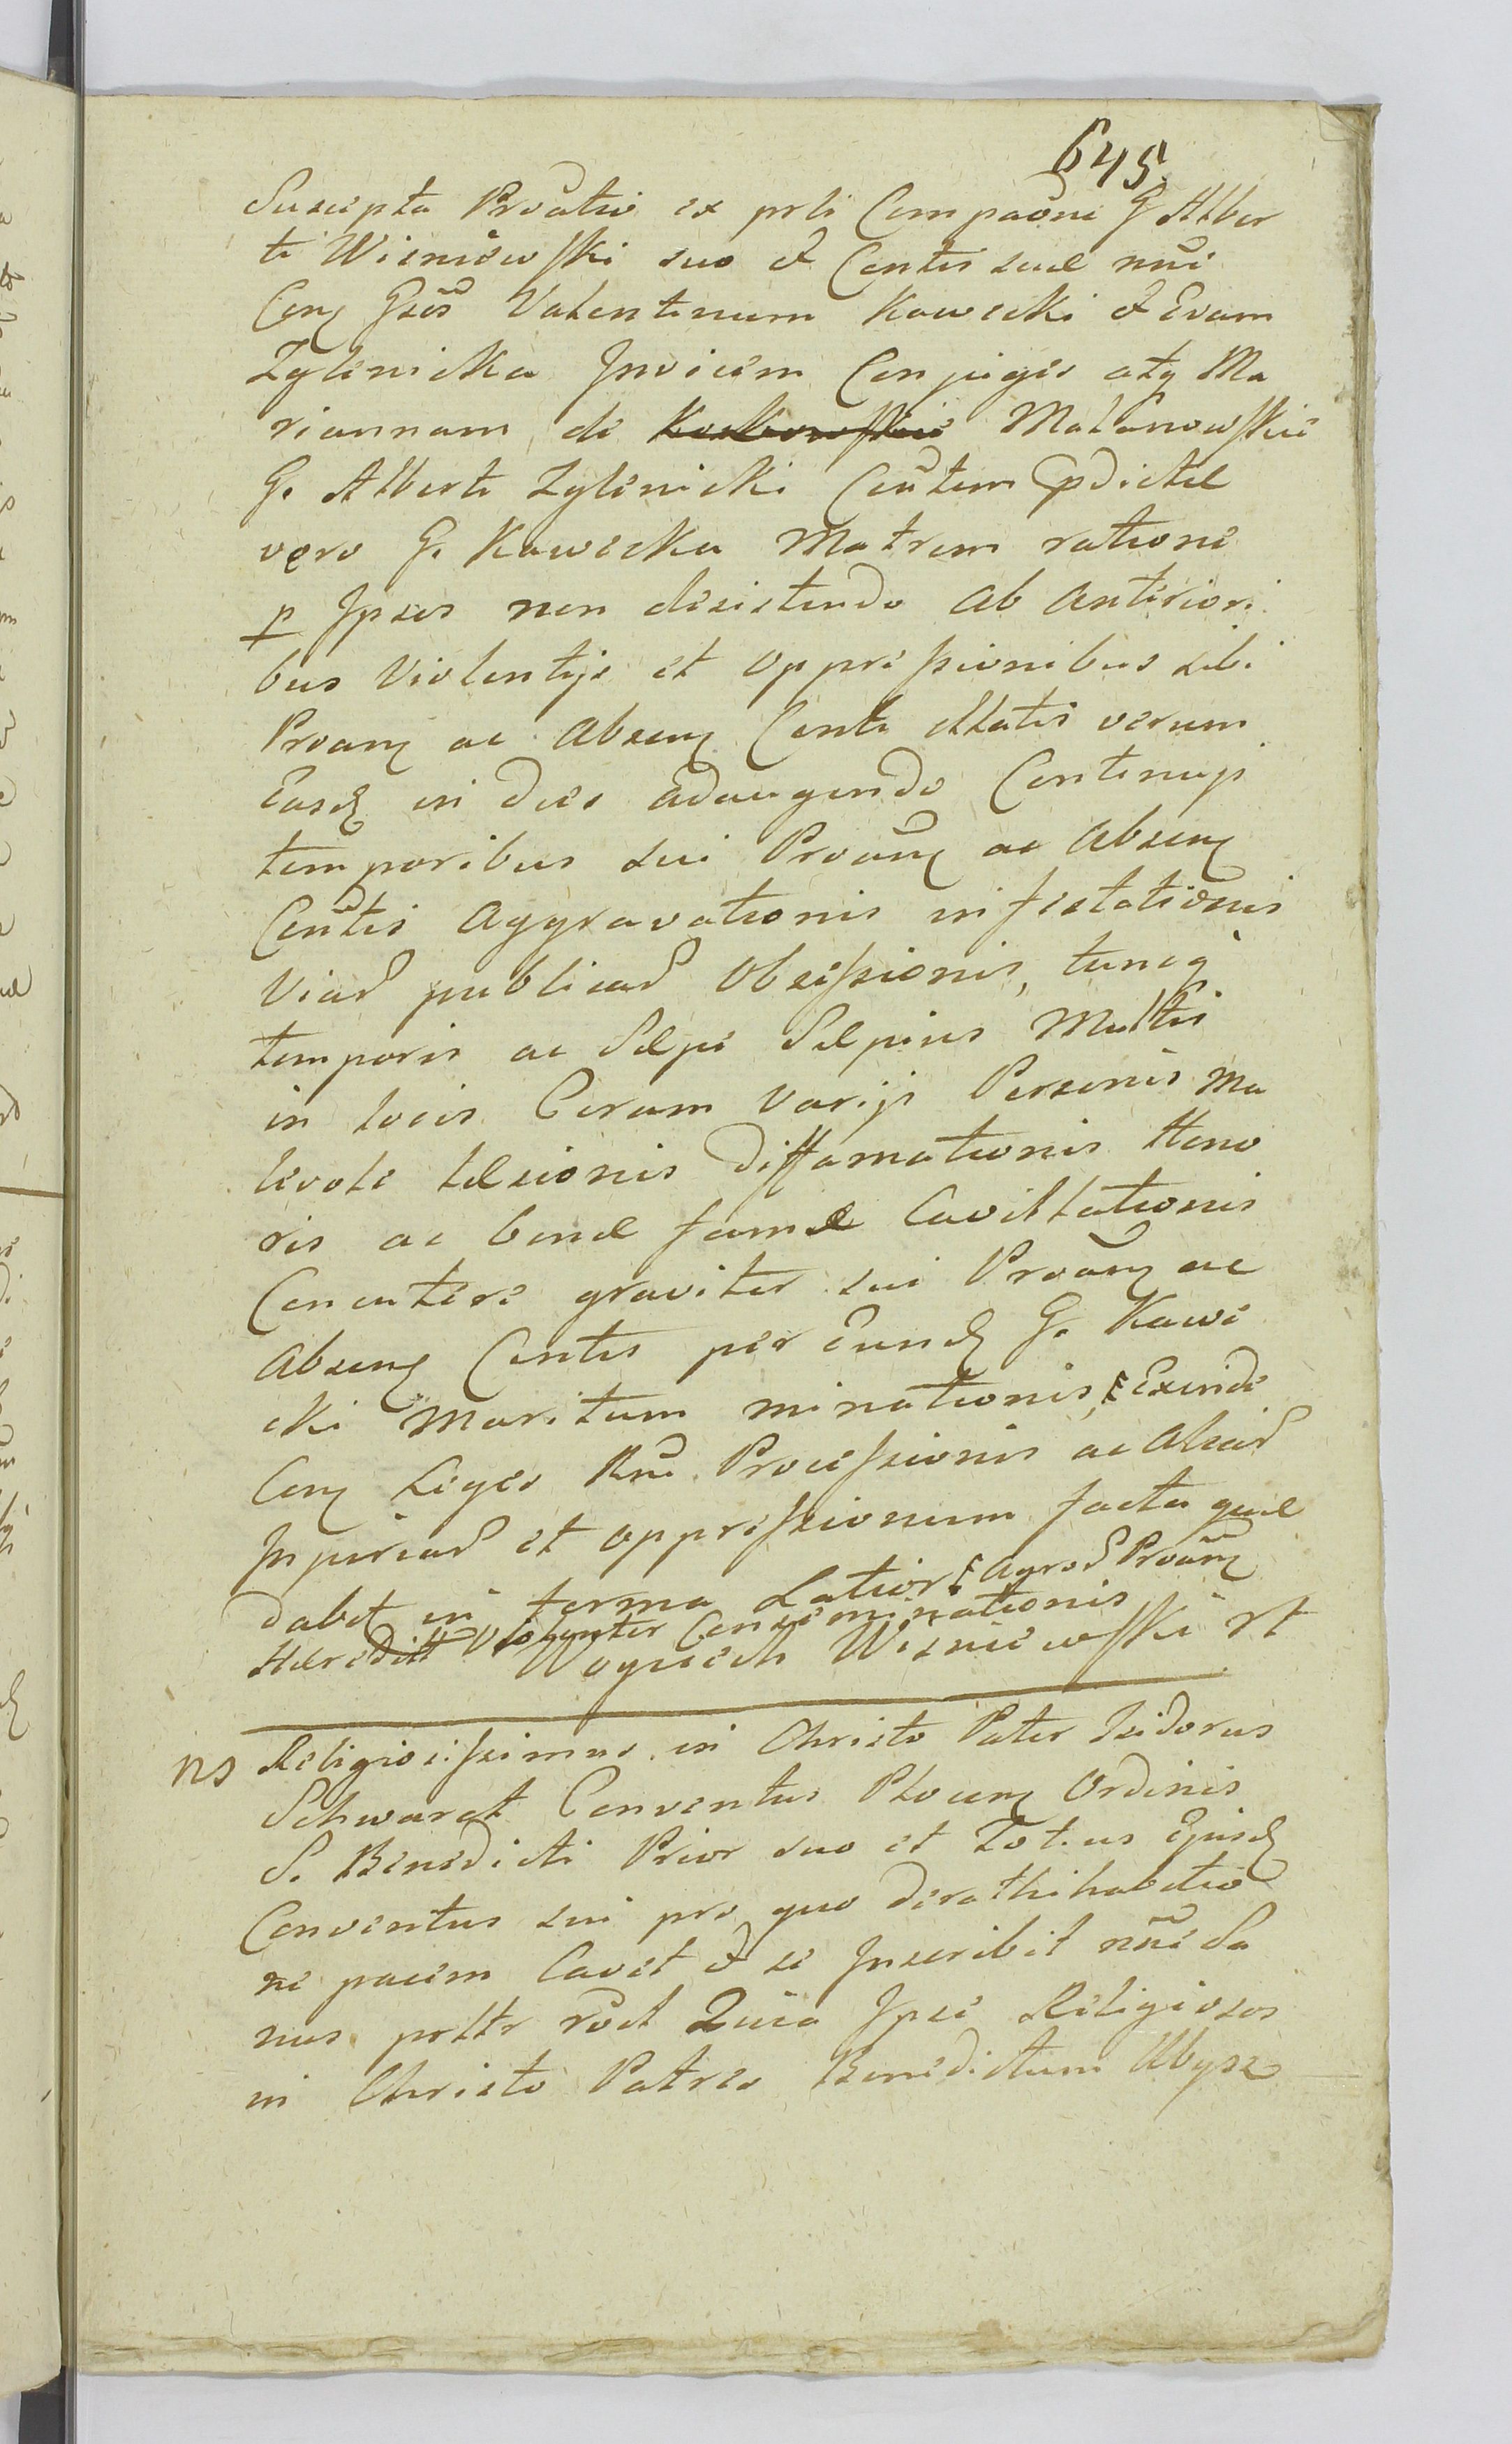 645
Suscepta Proatio ex prli Compaone G Alber
ti Wisniewski suo & Contis suae nne
Con Gsos Valentinum Kawecki & Evam
Zglenicka Invicem Conjuges atq Ma
riannam de Koskowskie Malanowskie
G. Alberti Zglinicki Contem pdictae
vero G. Kawecka Matrem ratione
p Ipsos non desistendo ab anteriori
bus Violentijs et oppressionibus sibi
Proan ac absen Conti illatis verum
Easd in dies adaugendo Continuis
temporibus sui Proan ac absen
Contis aggravationis infestationis
Viar publicar Obsessionis, tuncq
temporis ac Saepe Saepius Multis
in locis Coram varijs Personis Ma
levole laesionis diffamationis Hono
ris ac bonae famae Cavillationis
Concutere graviter sui Proan ac
absen Contis per Eund G. Kawe
cki Maritum minationis, Exinde
Con Leges Rni Processionis ac aliar
Injuriar et oppressionum facta quae
dabit in terma Latior Agror Proan
Haeredit Violenter Conseminationis
Woyciech Wisniewski rt
ns Religiosissimus in Christo Pater Isidorus
Schwarct Conventus Plocen Ordinis
S. Benedicti Prior suo et Totius Ejusd
Conventus sui pro quo derathihabitio
ne pacem Cavet & se Inscribit nne Sa
nus prltr rod Quia Ipse Religiosos
in Christo Patres Benedictum